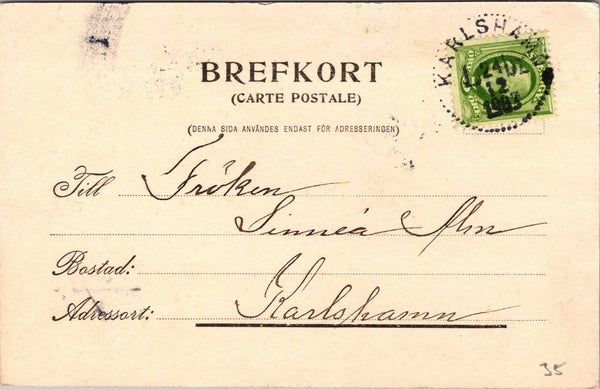 KARLSHAMN
12
1903
BREFKORT
(CARTE POSTALE)
(DENNA SIDA ANVÄNDES ENDAST FÖR ADRESSERINGEN)
Till Fröken
Linnéa Alm
Bostad:
Adressort: Karlshamn
35